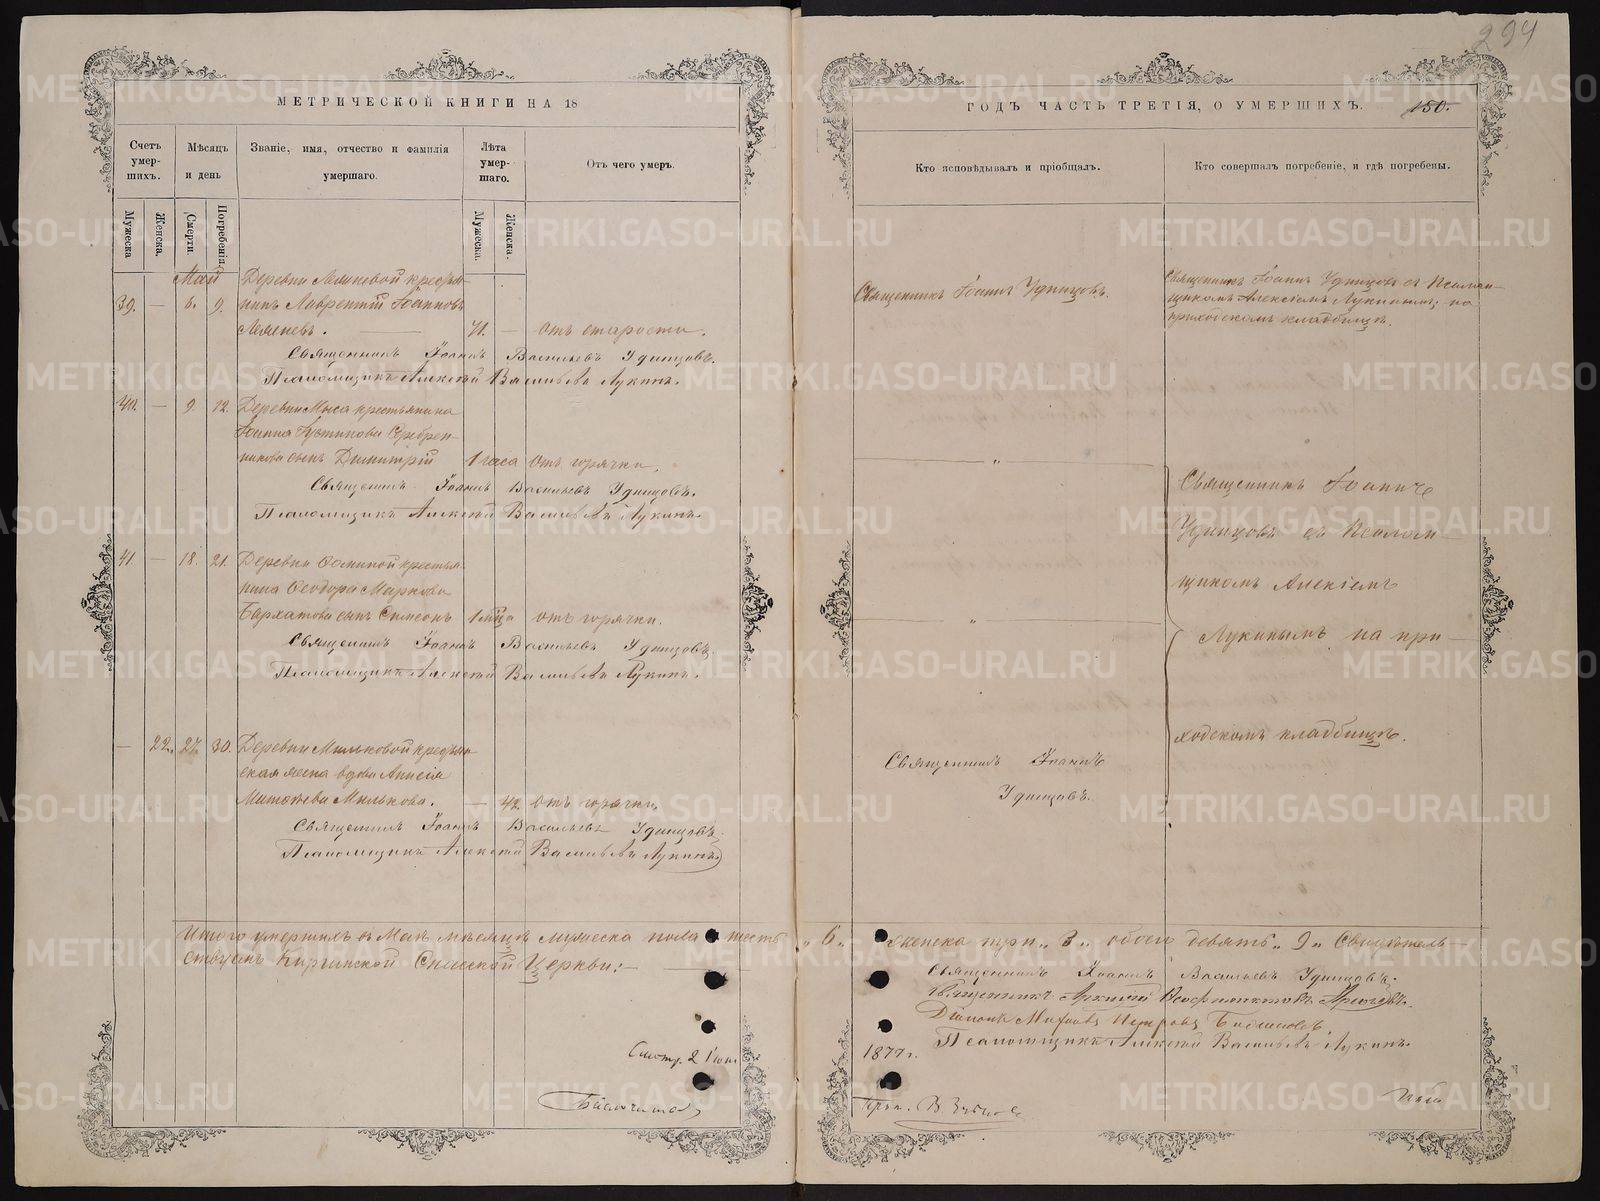 294
МЕТРИЧЕСКОЙ КНИГИ НА 18
ГОДЪ ЧАСТЬ ТРЕТІЯ, О УМЕРШИХЪ.
150.
Счетъ умер-шихъ.
Мѣсяцъ и день
Званіе, имя, отчество и фамилія умершаго.
Лѣта умер-шаго.
Отъ чего умеръ.
Кто исповѣдывалъ и пріобщалъ.
Кто совершалъ погребеніе, и гдѣ погребены.
Мужеска
Женска.
Смерти.
Погребенія.
Мужеска.
Женска.
Май
Деревни
39. — 6. 9. нинъ Лаврентій Іоанновъ
71. — отъ старости.
Священникъ Іоаннъ Удинцовъ.
Священникъ Іоаннъ Удинцовъ съ Псалом-
щикомъ Алексіемъ Лукинымъ, на
приходскомъ кладбищѣ.
Священникъ Іоаннъ Васильевъ Удинцовъ.
Псаломщикъ Алексѣй Васильевъ Лукинъ.
40. — 9. 12. Деревни Мыса крестьянина
Іоанна Устинова Серебрен-
никова сынъ Димитрій 1 часа отъ горячки.
Священникъ Іоаннъ Васильевъ Удинцовъ.
Псаломщикъ Алексѣй Васильевъ Лукинъ.
41. — 18. 21. Деревни Ѳоминой крестья-
нина Ѳеодора Маркова
Бархатова сынъ Симеонъ 1 мца отъ горячки.
Священникъ Іоаннъ Васильевъ Удинцовъ.
Псаломщикъ Алексѣй Васильевъ Лукинъ.
— 22. 27. 30. Деревни Мильковой кресть
ская жена вдова Анисія
Милькова. — 42. отъ горячки.
Священникъ Іоаннъ Васильевъ Удинцовъ.
Псаломщикъ Алексѣй Васильевъ Лукинъ.
Священникъ Іоаннъ
Удинцовъ съ Псалом-
щикомъ Алексіемъ
Лукинымъ на при-
ходскомъ кладбищѣ.
Священникъ Іоаннъ
Удинцовъ.
Итого умершихъ въ Маѣ мѣсяцѣ мужеска пола шесть „6„ женска три „3„ обоего девять „9„ Свидѣтель-
ствуемъ Киргинской Спасской Церкви:
Священникъ Іоаннъ Васильевъ Удинцовъ.
Священникъ
Діаконъ
Псаломщикъ Алексѣй Васильевъ Лукинъ.
Смотр. 2 Іюн.
1877 г.
METRIKI.GASO-URAL.RU